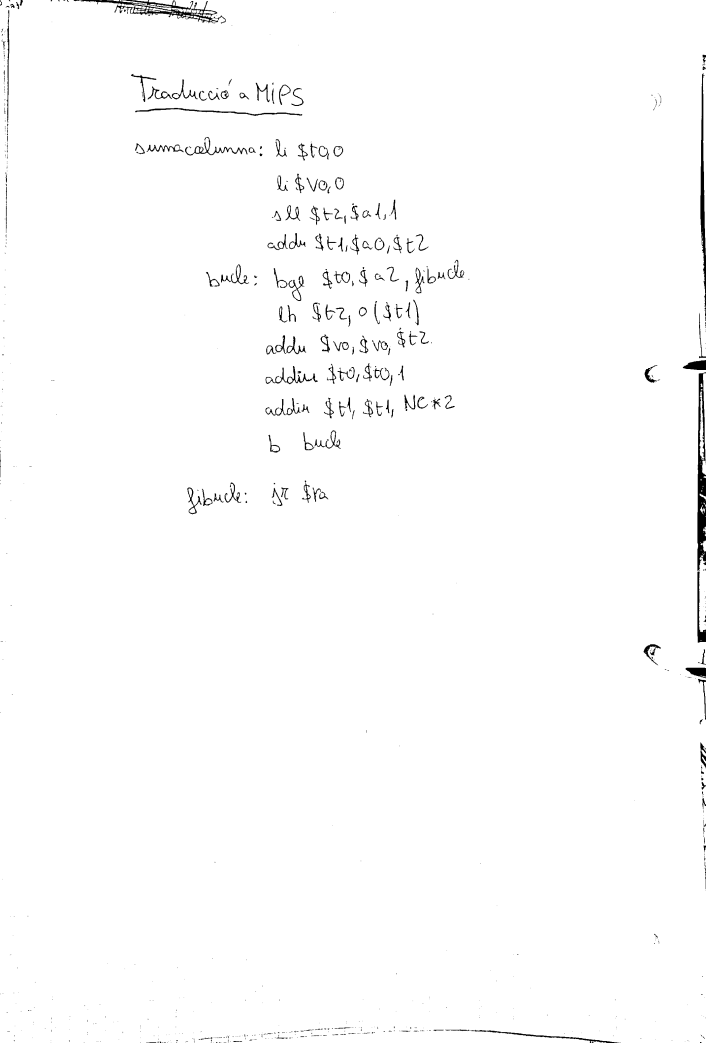 Traducció a MIPS
sumacolumna: li $t0,0
li $v0,0
sll $t2,$a1,1
addu $t1,$a0,$t2
bucle: bge $t0,$a2, fibucle
lh $t2, 0($t1)
addu $v0,$v0,$t2
addiu $t0,$t0,1
addiu $t1, $t1, NC*2
b bucle
fibucle: jr $ra